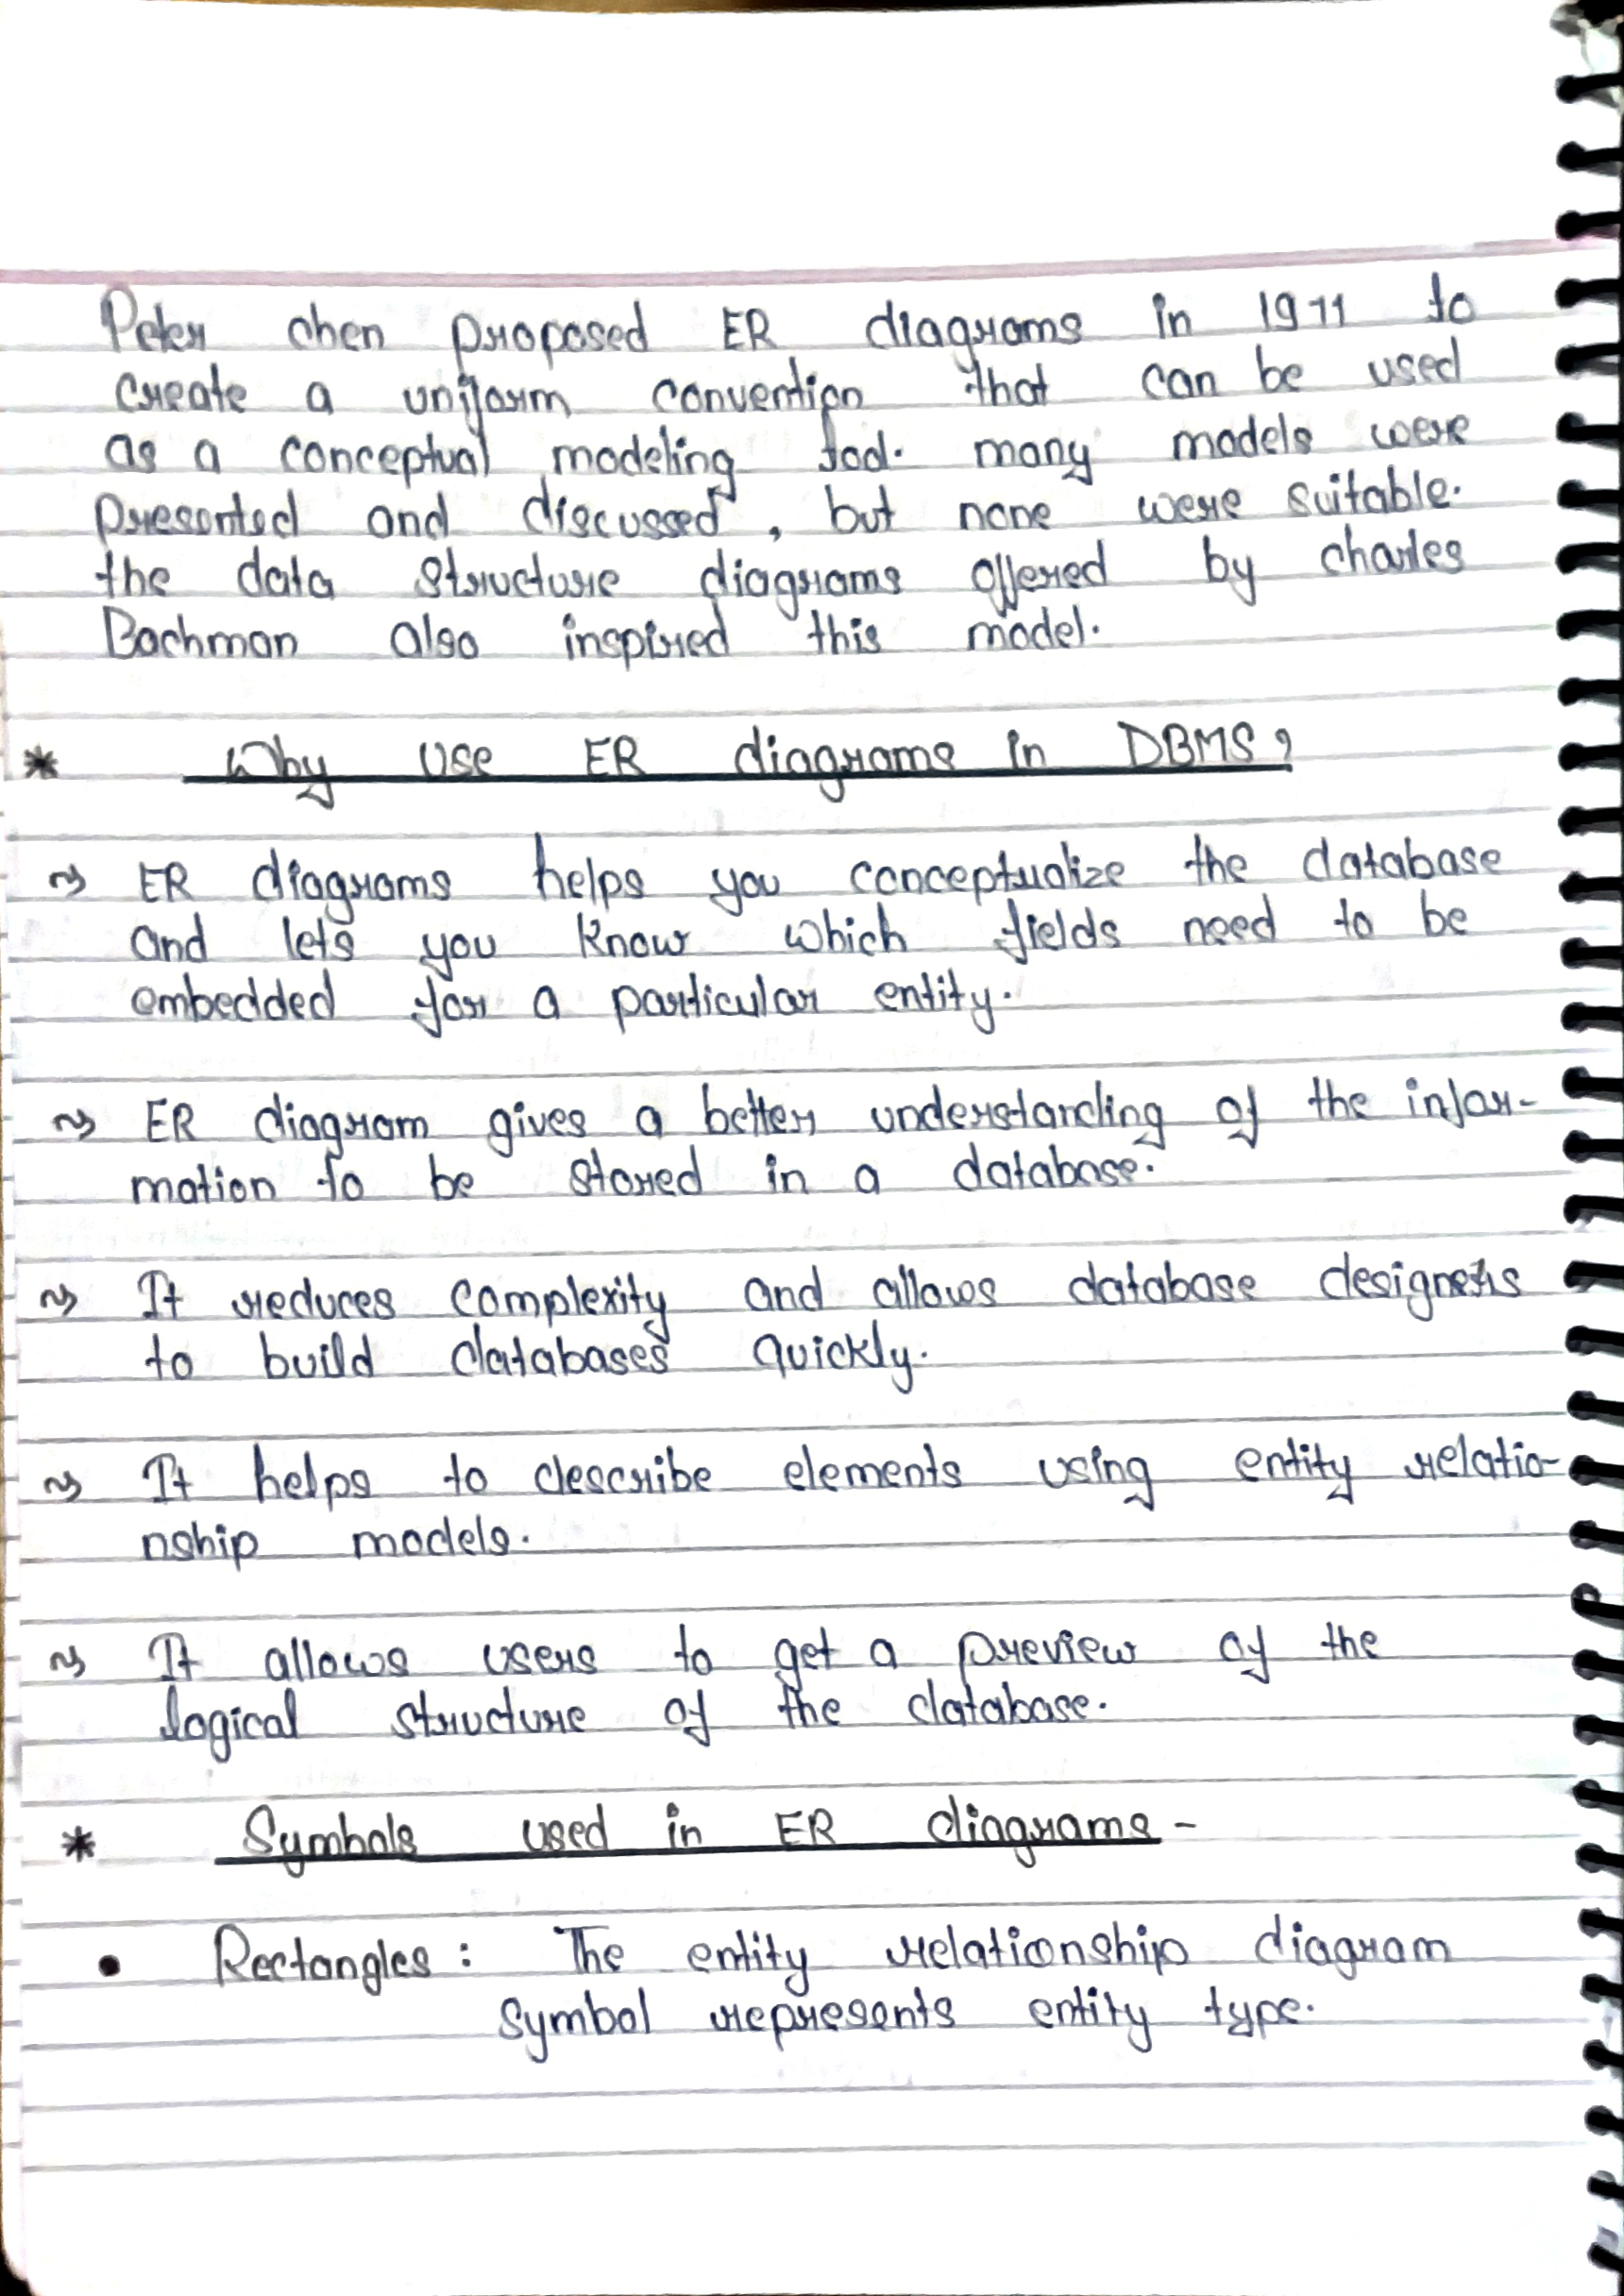 Peter chen proposed ER diagrams in 1971 to
create a uniform convention that can be used
as a conceptual modeling tool. many models were
presented and discussed, but none were suitable.
the data structure diagrams offered by charles
Bachman also inspired this model.
* Why use ER diagrams in DBMS?
~> ER diagrams helps you conceptualize the database
and lets you know which fields need to be
embedded for a particular entity.
~> ER diagram gives a better understanding of the infor-
mation to be stored in a database.
~> It reduces complexity and allows database designers
to build databases quickly.
~> It helps to describe elements using entity relatio-
nship models.
~> It allows users to get a preview of the
logical structure of the database.
* Symbols used in ER diagrams -
• Rectangles : The entity relationship diagram
symbol represents entity type.